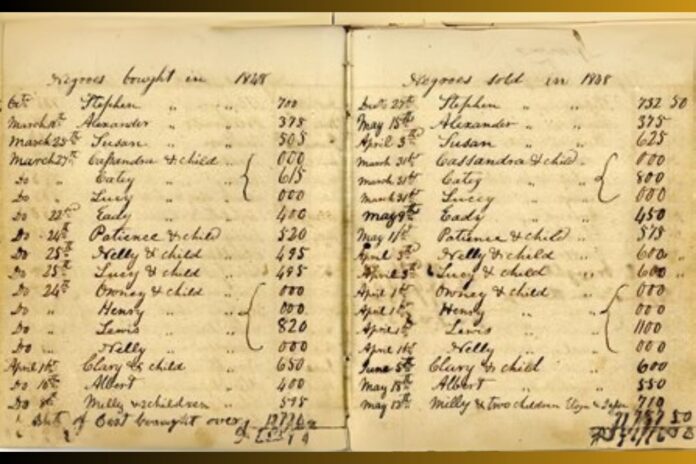 Negroes bought in 1848
Oct Stephen " " 700
March Alexander " 375
March 25th Susan " " 505
March 27th Cassandra & child " 000
Do " Catey " " 615
Do " Lucy " " 000
Do 22nd Eady " " 400
Do 24th Patience & child 520
Do 25th Nelly & child " 495
Do 25th Lucy & child " 495
Do 24th Owney & child 000
Do " Henry " " 000
Do " Lewis " 820
Do " Nelly " " 000
April 1st Clary & child " 650
Do 16th Albert " 400
Do 8th Milly & children " 575
of bought over
Negroes sold in 1848
27th Stephen " " 732 50
May 15th Alexander " " 375
April 3rd Susan " " 625
March 31st Cassandra & child " 000
March 31st Catey " " 800
March 31st Lucey " " 000
May 9th Eady " " 450
May 14th Patience & child " 575
April 3rd Nelly & child " 600 "
April 3rd Lucy & child " 600 "
April 1st Owney & child 000
April 1st Henry " " 000
April 1st Lewis " " 1100
April 1st Nelly " " 000
June 5th Clary & child 600
May 18th Albert " " 550
May 13th Milly & two children 710